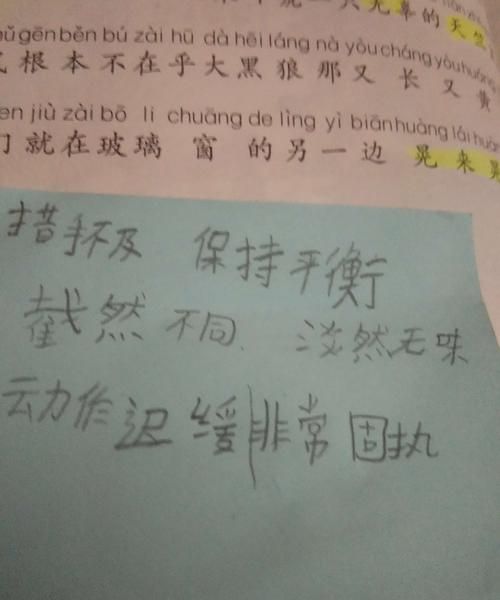 无辜的天竺
gēnběn bú zài hū dà hēi láng nà yòu cháng yòu huáng
根本不在乎大黑狼那又长又黄
en jiù zài bō li chuāng de lìng yì biān huàng lái huàn
们就在玻璃窗的另一边晃来晃
措手不及 保持平衡
截然不同 淡然无味
动作迟缓 非常固执